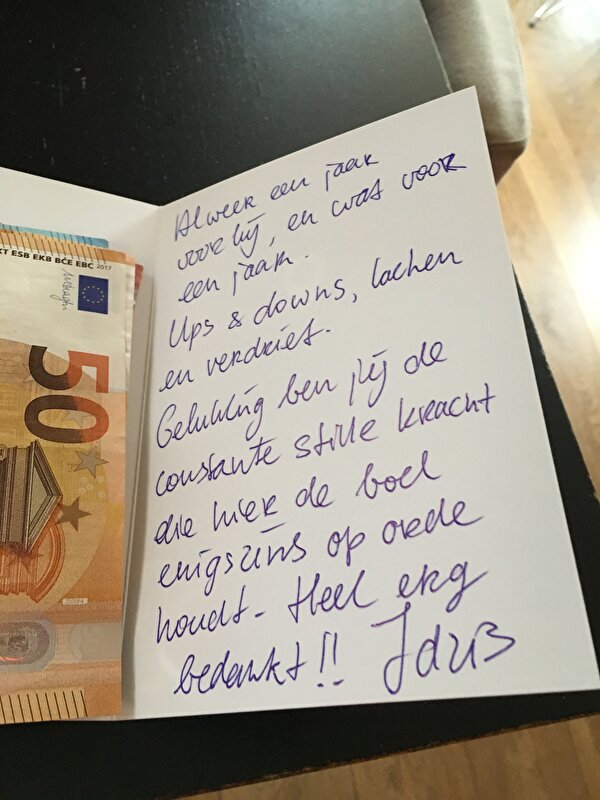 KT ESB EKB BCE EBC 2017
50
Al weer een jaar
voorbij, en wat voor
een jaar.
Ups & downs, lachen
en verdriet.
Gelukkig ben jij de
constante stille kracht
die hier de boel
enigszins op orde
houdt- Heel erg
bedankt!!